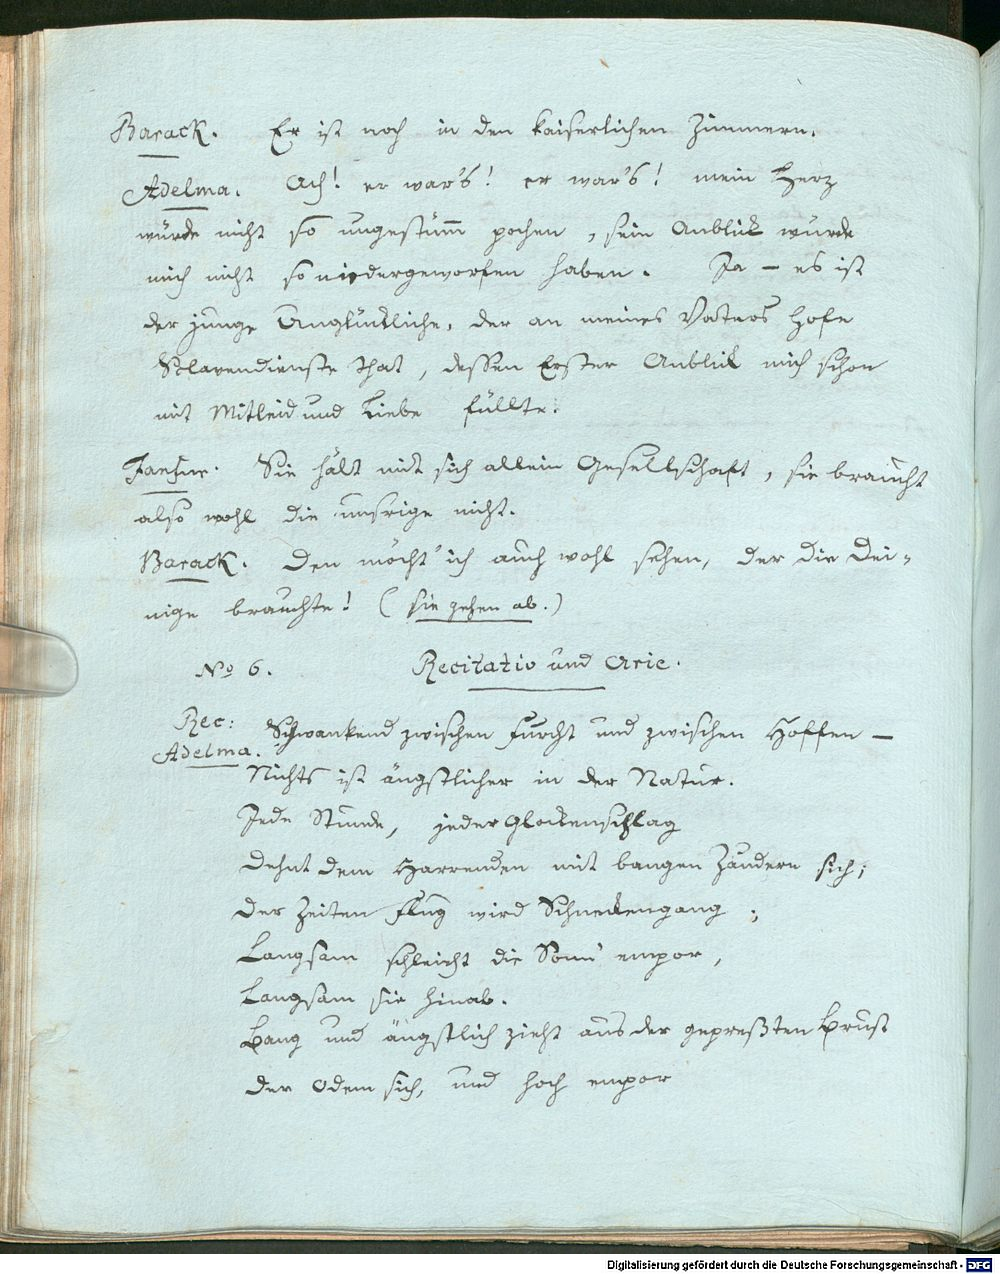 Barack. Er ist noch in den kaiserlichen Zimmern.
Adelma. Ach! er war's! er war's! mein Herz
würde nicht so ungestüm̄ pochen, sein Anblick würde
mich nicht so niedergeworfen haben. Ja – es ist
der junge Unglückliche, der an meines Vaters Hofe
Sclavendienste that, dessen Erster Anblick mich schon
mit Mitleid und Liebe füllte.
Sie hält mit sich allein Gesellschaft, sie braucht
also wohl die unsrige nicht.
Barack. Den möcht' ich auch wohl sehen, der die Dei-
nige brauchte! (sie gehen ab.)
No 6. Recitativ und Arie.
Rec: Schwankend zwischen Furcht und zwischen Hoffen –
Adelma.
Nichts ist ängstlicher in der Natur.
Jede Stunde, jeder Glockenschlag
Dehnt dem Harrenden mit bangen Zaudern sich;
Der Zeiten Flug wird Schneckengang;
Langsam schleicht die Sonn' empor,
Langsam sie hinab.
Bang und ängstlich zieht aus der gepreßten Brust
der Odem sich, und hoch empor
Digitalisierung gefördert durch die Deutsche Forschungsgemeinschaft - DFG